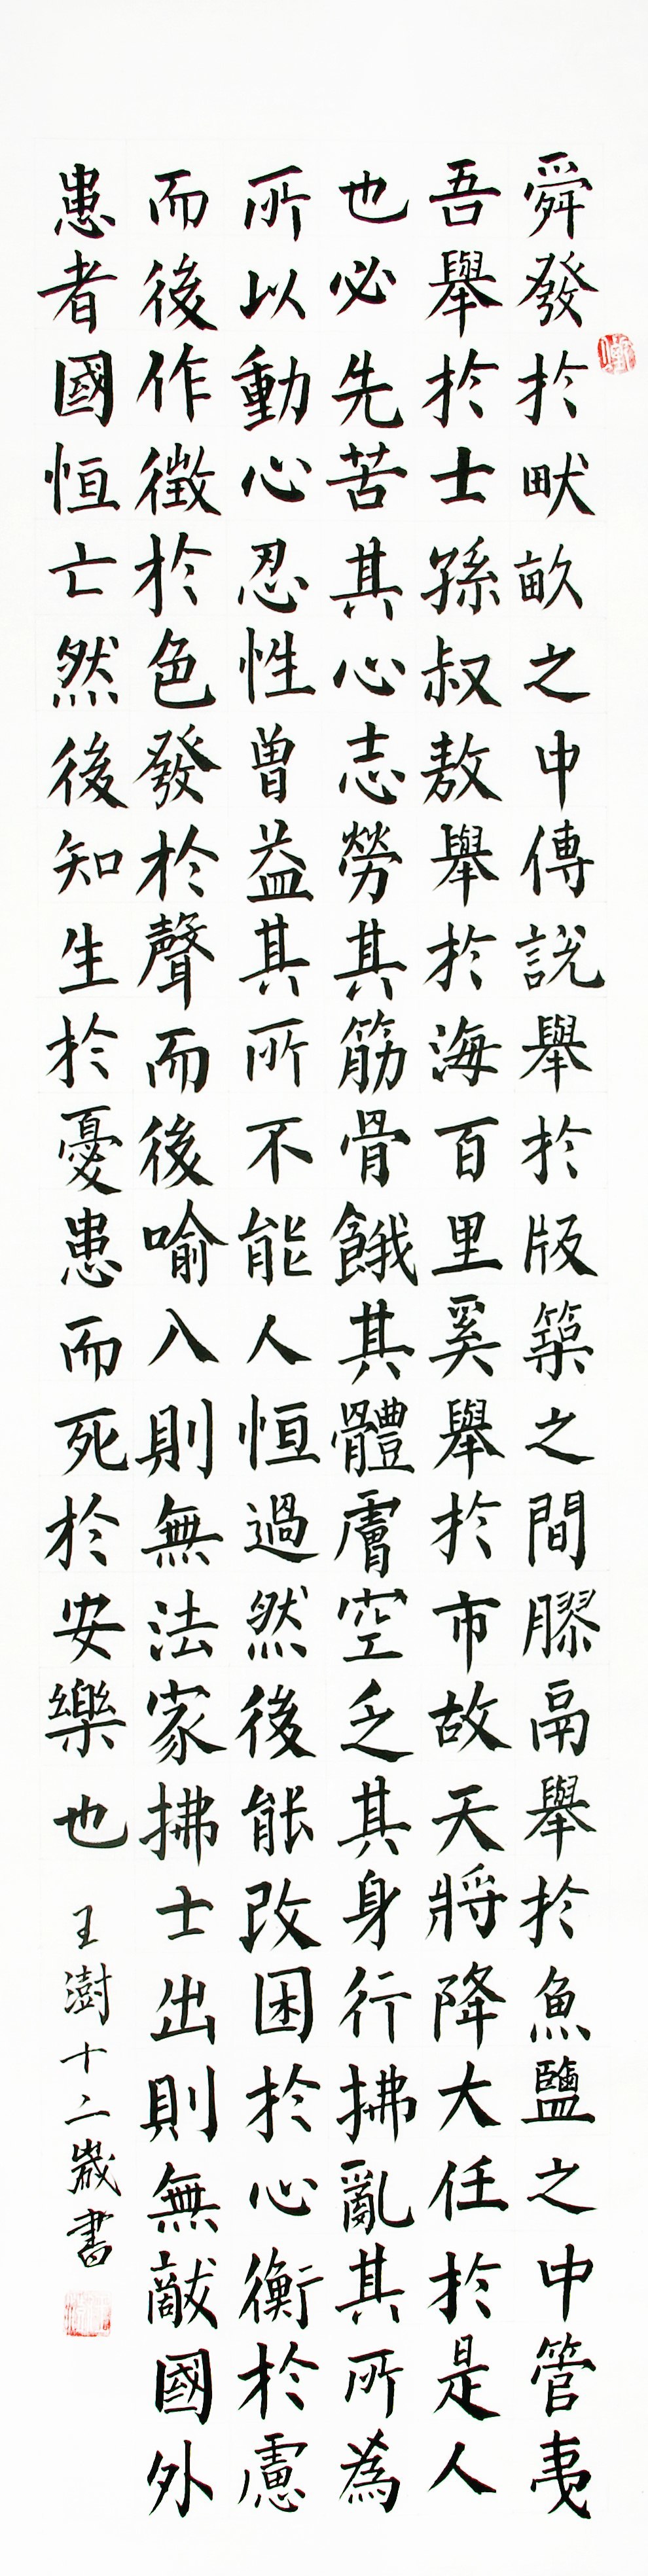 舜發於畎畝之中傅説舉於版築之間膠鬲舉於魚鹽之中管夷
吾舉於士孫叔敖舉於海百里奚舉於市故天將降大任於是人
也必先苦其心志勞其筋骨餓其體膚空乏其身行拂亂其所為
所以動心忍性曾益其所不能人恒過然後能改困於心衡於慮
而後作徵於色發於聲而後喻入則無法家拂士出則無敵國外
患者國恒亡然後知生於憂患而死於安樂也
王澍十二歲書